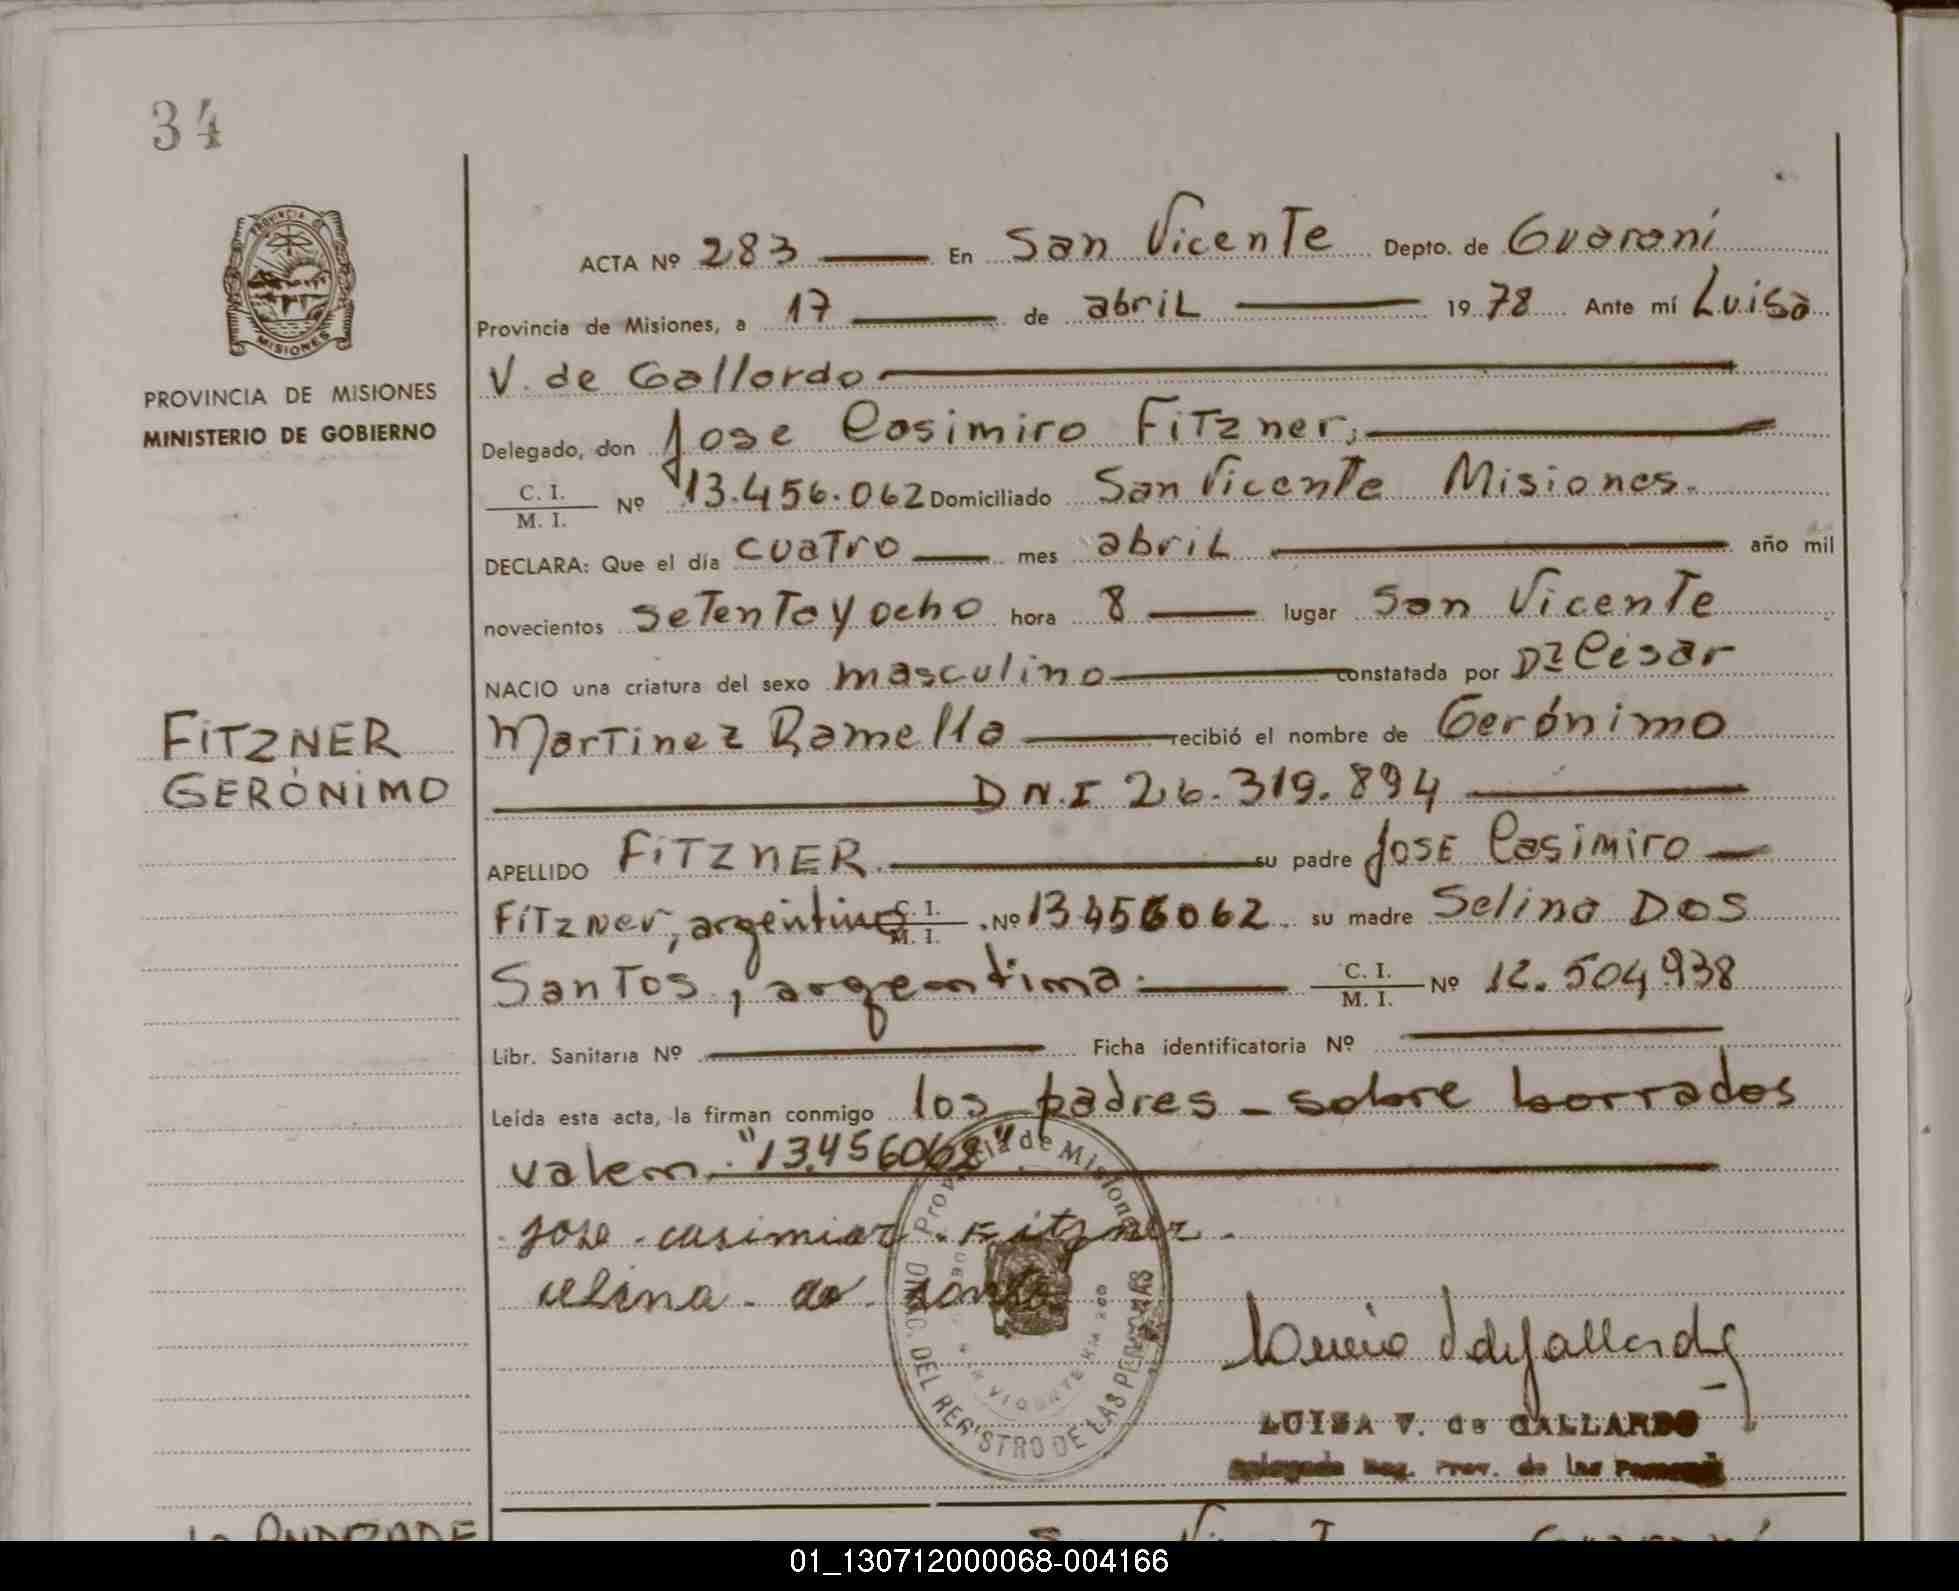 34
PROVINCIA DE
MISIONES
PROVINCIA DE MISIONES
MINISTERIO DE GOBIERNO
FITZNER
GERÓNIMO
ACTA Nº 283 En San Vicente Depto. de Guaraní
Provincia de Misiones, a 17 de abril 1978 Ante mí Luisa
V. de Gallardo
Delegado, don Jose Casimiro Fitzner,
C. I.
M. I. Nº 13.456.062 Domiciliado San Vicente Misiones.
DECLARA: Que el día cuatro mes abril año mil
novecientos setenta y ocho hora 8 lugar San Vicente
NACIO una criatura del sexo masculino constatada por Dr César
Martinez Ramella recibió el nombre de Gerónimo
D N.I 26.319.894
APELLIDO FITZNER. su padre José Casimiro
Fitzner, argentino C. I. M. I. Nº 13456062 su madre Selina Dos
Santos, argentina. C. I. M. I. Nº 12.504.938
Libr. Sanitaria Nº Ficha identificatoria Nº
Leída esta acta, la firman conmigo los padres - sobre borrados
valen "13.456062"
jose casimiar Fitzner
celina do
Provincia de Misiones
DIREC. DEL REGISTRO DE LAS PERSONAS
LUISA V. de GALLARDO
Delegada Reg. Prov. de las Personas
01_130712000068-004166